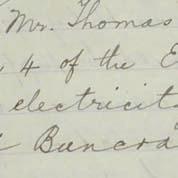 Mr. Thomas
4 of the E
electricit
Buncra